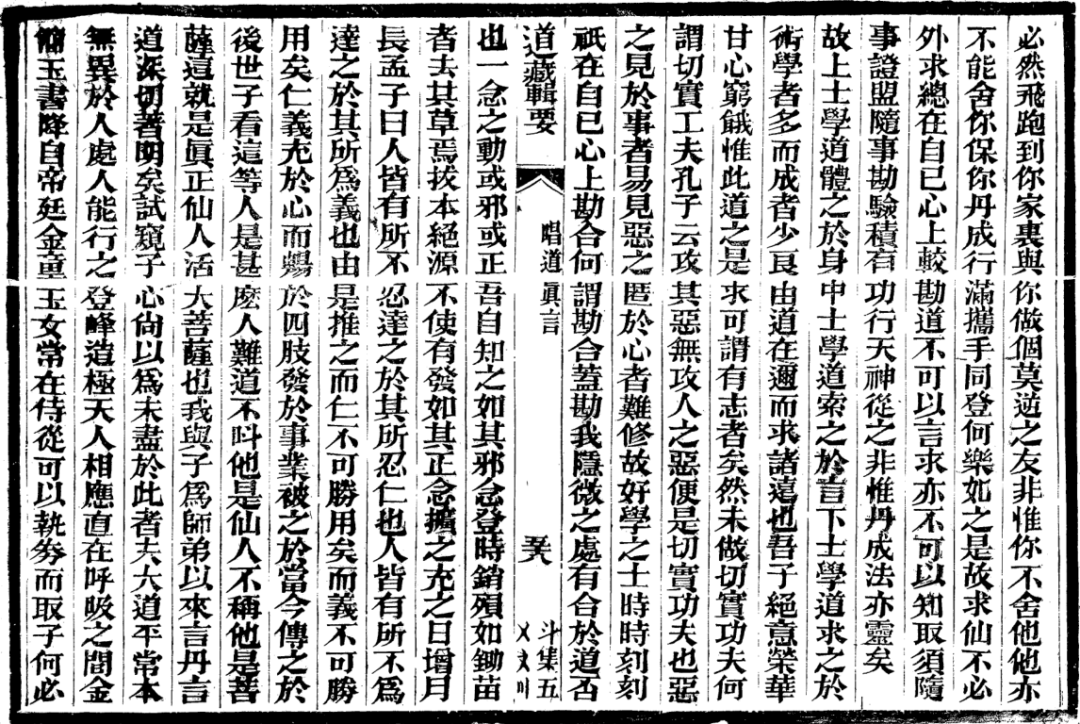 必然飛跑到你家裏與你做個莫逆之友非惟你不舍他他亦
不能舍你保你丹成行滿攜手同登何樂如之是故求仙不必
外求總在自己心上較勘道不可以言求亦不可以知取須隨
事證盟隨事勘驗積有功行天神從之非惟丹成法亦靈矣
故上士學道體之於身中士學道索之於言下士學道求之於
術學者多而成者少良由道在邇而求諸遠也吾子絕意榮華
甘心窮餓惟此道之是求可謂有志者矣然未做切實功夫何
謂切實工夫孔子云攻其惡無攻人之惡便是切實功夫也惡
之見於事者易見惡之匿於心者難修故好學之士時時刻刻
祇在自已心上勘合何謂勘合蓋勘我隱微之處有合於道否
道藏輯要 唱道眞言 斗集五
也一念之動或邪或正吾自知之如其邪念登時銷殞如鋤苗
者去其草焉拔本絕源不使有發如其正念擴之充之日增月
長孟子曰人皆有所不忍達之於其所忍仁也人皆有所不爲
達之於其所爲義也由是推之而仁不可勝用矣而義不可勝
用矣仁義充於心而賜於四肢發於事業被之於當今傳之於
後世子看這等人是甚麼人難道不呌他是仙人不稱他是菩
薩這就是眞正仙人活大菩薩也我與子爲師弟以來言丹言
道深切著明矣試窺子心尙以爲未盡於此者夫大道平常本
無異於人處人能行之登峰造極天人相應直在呼吸之間金
簡玉書降自帝廷金童玉女常在侍從可以執劵而取子何必